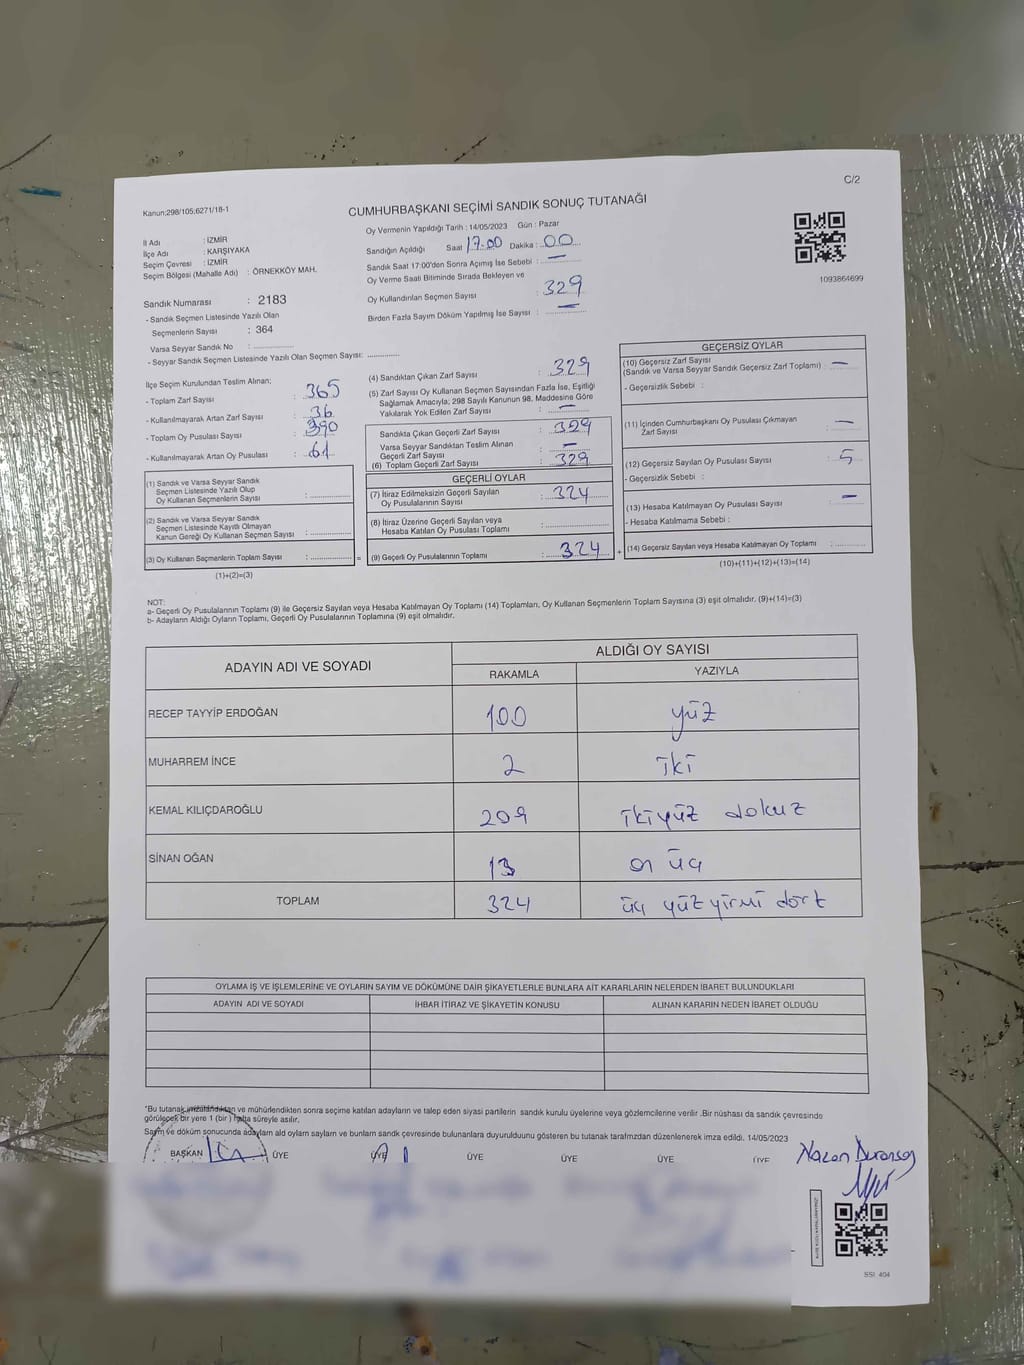 C/2
Kanun:298/105;6271/18-1
CUMHURBAŞKANI SEÇİMİ SANDIK SONUÇ TUTANAĞI
İl Adı : İZMİR
İlçe Adı : KARŞIYAKA
Seçim Çevresi : İZMİR
Seçim Bölgesi (Mahalle Adı) : ÖRNEKKÖY MAH.
Sandık Numarası : 2183
- Sandık Seçmen Listesinde Yazılı Olan
Seçmenlerin Sayısı : 364
Varsa Seyyar Sandık No :
- Seyyar Sandık Seçmen Listesinde Yazılı Olan Seçmen Sayısı:
Oy Vermenin Yapıldığı Tarih : 14/05/2023 Gün : Pazar
Sandığın Açıldığı Saat 17:00 Dakika : 00
Sandık Saat 17:00'den Sonra Açımış İse Sebebi : —
Oy Verme Saati Bitiminde Sırada Bekleyen ve
Oy Kullandırılan Seçmen Sayısı : 329
Birden Fazla Sayım Döküm Yapılmış İse Sayısı : —
1093864699
İlçe Seçim Kurulundan Teslim Alınan;
- Toplam Zarf Sayısı : 365
- Kullanılmayarak Artan Zarf Sayısı : 36
- Toplam Oy Pusulası Sayısı : 390
- Kullanılmayarak Artan Oy Pusulası : 61
(1) Sandık ve Varsa Seyyar Sandık
Seçmen Listesinde Yazılı Olup
Oy Kullanan Seçmenlerin Sayısı :
(2) Sandık ve Varsa Seyyar Sandık
Seçmen Listesinde Kayıtlı Olmayan
Kanun Gereği Oy Kullanan Seçmen Sayısı :
(3) Oy Kullanan Seçmenlerin Toplam Sayısı : =
(1)+(2)=(3)
(4) Sandıktan Çıkan Zarf Sayısı : 329
(5) Zarf Sayısı Oy Kullanan Seçmen Sayısından Fazla İse, Eşitliği
Sağlamak Amacıyla; 298 Sayılı Kanunun 98. Maddesine Göre
Yakılarak Yok Edilen Zarf Sayısı : —
Sandıkta Çıkan Geçerli Zarf Sayısı : 329
Varsa Seyyar Sandıktan Teslim Alınan
Geçerli Zarf Sayısı : —
(6) Toplam Geçerli Zarf Sayısı : 329
GEÇERLİ OYLAR
(7) İtiraz Edilmeksizin Geçerli Sayılan
Oy Pusulalarının Sayısı : 324
(8) İtiraz Üzerine Geçerli Sayılan veya
Hesaba Katılan Oy Pusulası Toplamı :
(9) Geçerli Oy Pusulalarının Toplamı : 324 +
GEÇERSİZ OYLAR
(10) Geçersiz Zarf Sayısı
(Sandık ve Varsa Seyyar Sandık Geçersiz Zarf Toplamı) : —
- Geçersizlik Sebebi :
(11) İçinden Cumhurbaşkanı Oy Pusulası Çıkmayan
Zarf Sayısı : —
(12) Geçersiz Sayılan Oy Pusulası Sayısı : 5
- Geçersizlik Sebebi :
(13) Hesaba Katılmayan Oy Pusulası Sayısı : —
- Hesaba Katılmama Sebebi :
(14) Geçersiz Sayılan veya Hesaba Katılmayan Oy Toplamı :
(10)+(11)+(12)+(13)=(14)
NOT:
a- Geçerli Oy Pusulalarının Toplamı (9) ile Geçersiz Sayılan veya Hesaba Katılmayan Oy Toplamı (14) Toplamları, Oy Kullanan Seçmenlerin Toplam Sayısına (3) eşit olmalıdır. (9)+(14)=(3)
b- Adayların Aldığı Oyların Toplamı, Geçerli Oy Pusulalarının Toplamına (9) eşit olmalıdır.
ADAYIN ADI VE SOYADI
ALDIĞI OY SAYISI
RAKAMLA YAZIYLA
RECEP TAYYİP ERDOĞAN 100 yüz
MUHARREM İNCE 2 iki
KEMAL KILIÇDAROĞLU 209 ikiyüz dokuz
SİNAN OĞAN 13 on üç
TOPLAM 324 üç yüz yirmi dört
OYLAMA İŞ VE İŞLEMLERİNE VE OYLARIN SAYIM VE DÖKÜMÜNE DAİR ŞİKAYETLERLE BUNLARA AİT KARARLARIN NELERDEN İBARET BULUNDUKLARI
ADAYIN ADI VE SOYADI İHBAR İTİRAZ VE ŞİKAYETİN KONUSU ALINAN KARARIN NEDEN İBARET OLDUĞU
*Bu tutanak imzalandıktan ve mühürlendikten sonra seçime katılan adayların ve talep eden siyasi partilerin sandık kurulu üyelerine veya gözlemcilerine verilir .Bir nüshası da sandık çevresinde
görülecek bir yere 1 (bir ) hafta süreyle asılır.
Sayım ve döküm sonucunda adayların ald oyların sayları ve bunların sandk çevresinde bulunanlara duyurulduunu gösteren bu tutanak tarafmzdan düzenlenerek imza edildi. 14/05/2023
BAŞKAN ÜYE ÜYE ÜYE ÜYE ÜYE ÜYE
SSI 404